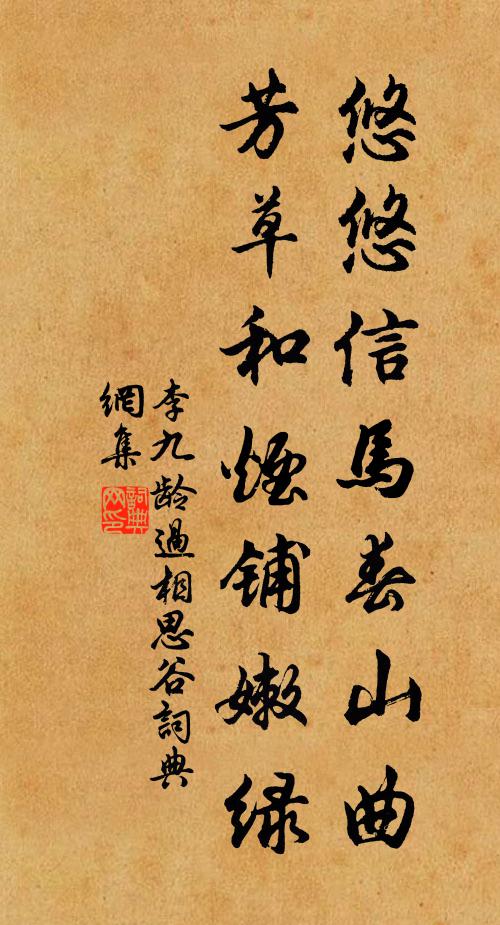 悠悠信馬春山曲
芳草和煙鋪嫩綠
李九齡過相思谷詞典
網集
詞典网印